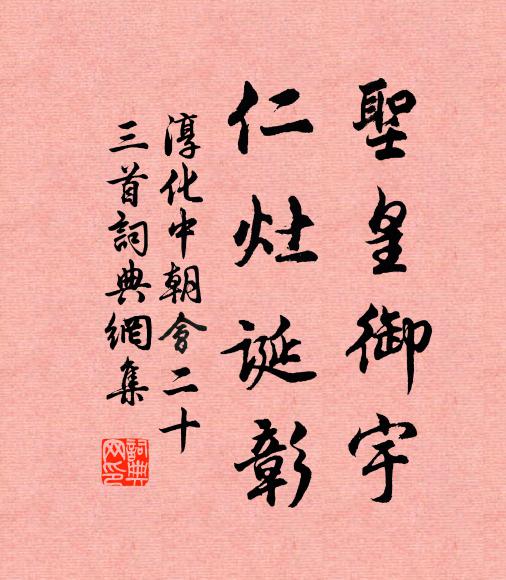 聖皇御宇
仁灶誕彰
淳化中朝會二十
三首詞典網集
詞典网印